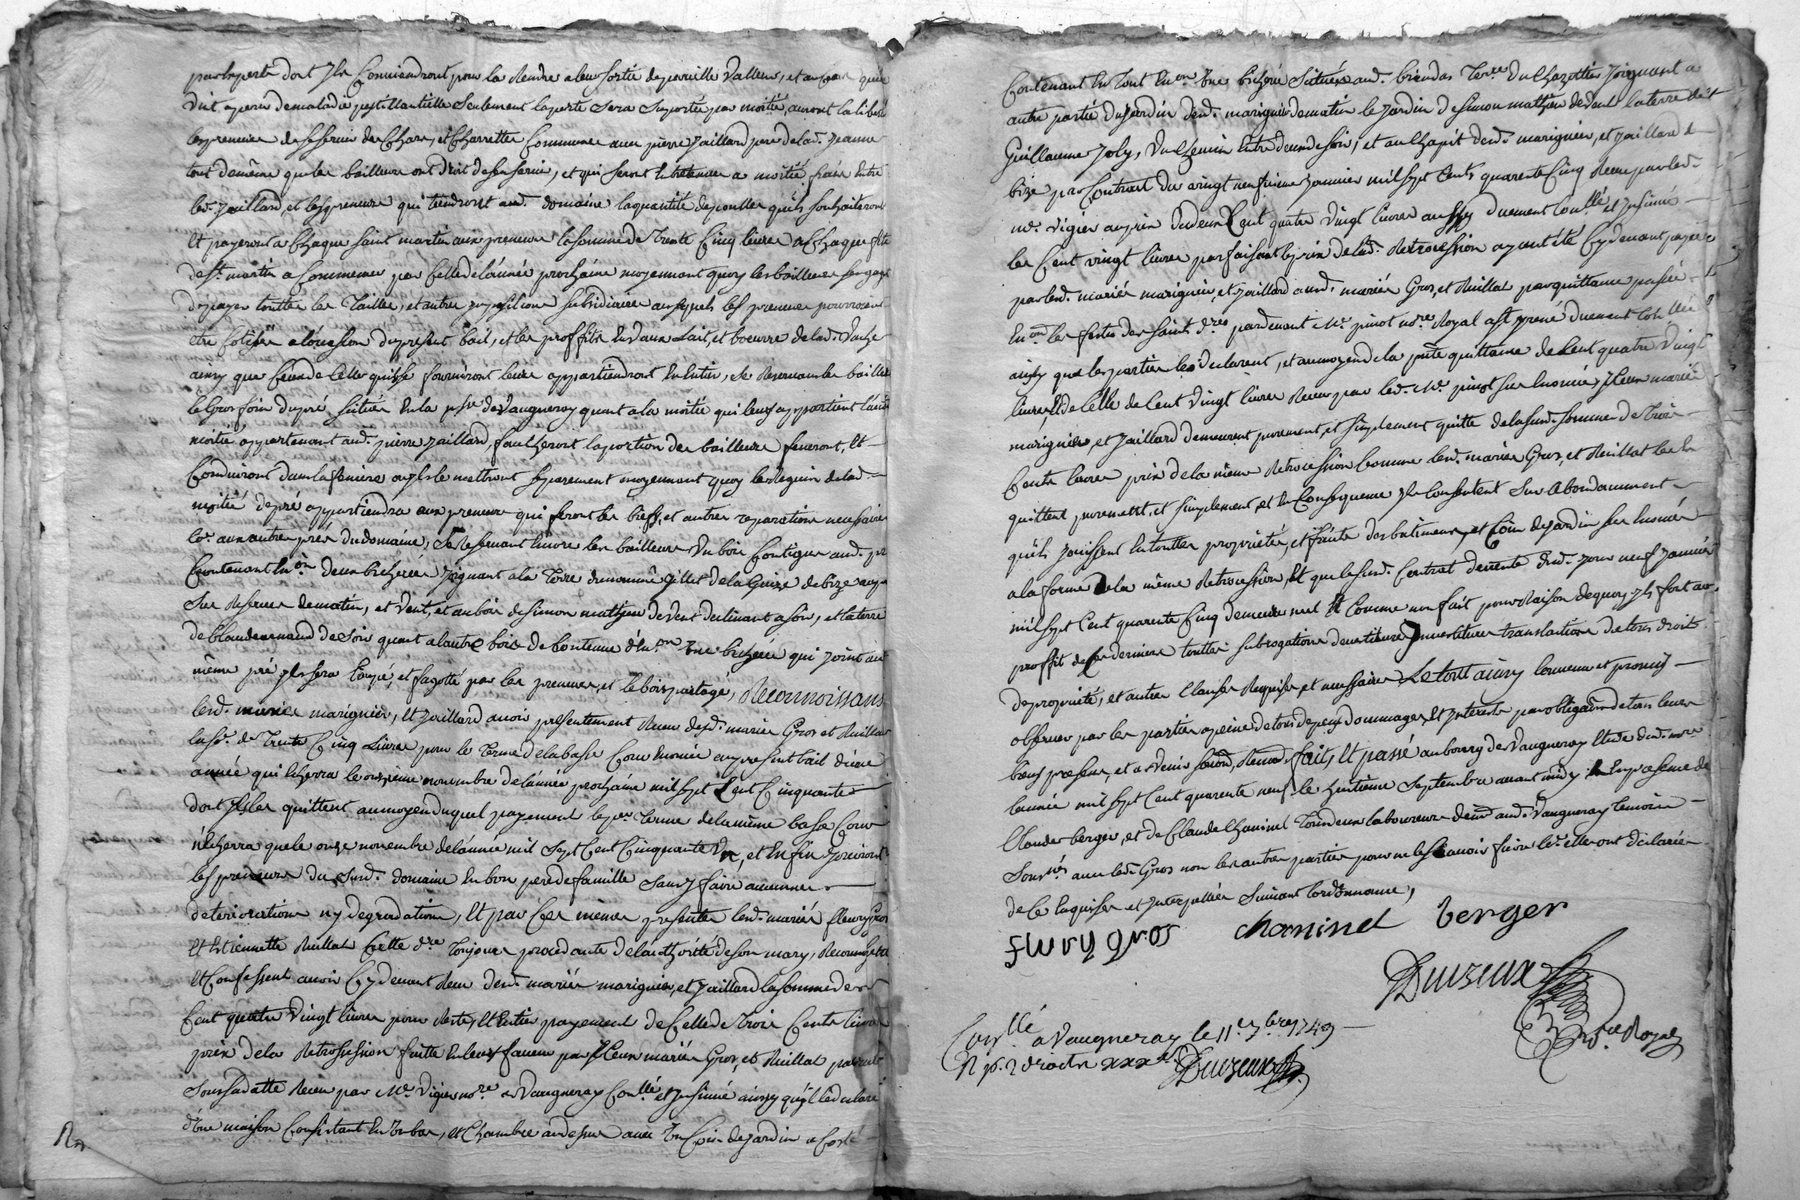 par lexperts dont Ils Conviendront pour la Rendre a leur sortie de pareille Valleur, et au cas quil
Vint a perir de maladie pestillantielle seulement la perte sera suportée par moitié, auront la liberté
les preneurs de se servir des Chars, et Charrettes Communes avec pierre jaillard pere de lad. jeanne
tout de même que les bailleurs ont droit de sen servir, et qui seront Entretenus a moitié fraix entre
led. jaillard, et les preneurs qui tiendront aud. domaine la quantité de poulles quils souhaiteront
Et payeront a Chaque saint martin aux preneurs la somme de trente Cinq livres a Chaque fête
de st. martin a Commencer par Celle de l'année prochaine moyennant quoy les bailleurs
de payer touttes les Tailles, et autres impositions subsidiaires auxquels les preneurs pourroient
etre Cotisés a l'ocasion du present bail, et les proffits En Vaux Lait, et beurre de lad. Vache
ainsy que Ceux de Celle quils fourniront leurs appartiendront En Entier, se Reservant les bailleurs
le Gros foin du pré situé En la psse. de Vaugneray quant a la moitié qui leurs appartient l'autre
moitié appartenant aud. pierre jaillard, faucheront la portion des bailleurs feneront, Et
Conduiront dans la feniere ou Ils le mettront separement moyennant quoy le Reguin de lad.
moitié de pré appartiendra aux preneurs qui feront les biefs, et autres reparations necessaires
Co. aux autres prés du domaine, se Reservant Encore les bailleurs Du bois Contigue aud. pré
Contenant En.on deux bicherées joignant a la Terre du nommé Gillet de la Guise de bize aux
Sus Reserves de matin, et Vent, et au bois de simon mathieu de Vent declinant a soir, et la terre
de Claude arnaud de soir quant a l'autre bois de Contenue d'En.on Une bicherée qui joint au
même pré Il sera Coupé, et fagotté par les preneurs, et le bois partagé, Reconnoissans
led. mariés marignier, Et jaillard avoir presentement Receu desd. mariés Gros et Reillat
lasd. de Trente Cinq Livres pour le Terme de la basse Cour Enoncée au present bail d'Une
année qui Echerra le onzieme novembre de l'année prochaine mil sept Cent Cinquante
dont Ils les quittent au moyen duquel payement le per. Terme de la même basse Cour
n'Echerra que le onze novembre de l'année mil sept Cent Cinquante Un, et Enfin Joüiront
les preneurs du susd. domaine En bon pere de famille sans y faire aucunes
deteriorations ny degradations, Et par Ces mêmes presentes led. mariés fleury Gros
Et Estiennette Reillat Cette dre. Toujours procedante de l'authorité de son mary, Reconnoissent
Et Confessent avoir Cy devant Receu desd. mariés marignier, et jaillard la somme de
Cent quatre Vingt livres pour Reste, Et Entier payement de Celle de Trois Cents livres
prix de la Retrocession faitte En leur faveur par Iceux mariés Gros, et Reillat par acte
sous sa datte Receu par Me. Vigier nore. a Vaugneray Con.llé et Insinué ainsy quil le declare
d'Une maison Consistant En Un bas, et Chambre au dessus avec Un Coin de jardin a Coté
Contenant En Tout En.on Une bicherée Située aud. Terre joignant a
autre partie du jardin desd. marignier de matin le jardin de simon mathieu de Vent la terre de
Guillaume joly, Un Chemin Entre deux de soir, et au Chapit desd. marignier, et jaillard de
bize par Contract du vingt neufvieme janvier mil sept Cents quarente Cinq Receu par led.
Me. Vigier au prix de deux Cent quatre Vingt livres aussy duement Con.llé et Insinué
les Cent vingt livres parfaisant le prix de lad. Retrocession ayant été Cy devant payées
par led. mariés marignier, et jaillard aud. mariés Gros, et Reillat par quittance passée
En.on les festes des saints dres. pardevant Me. pinot nore. Royal au st. Irené duement Con.llée
ainsy que les parties les declarent, et au moyen de la pnte quittance de Cent quatre Vingt
livres, Et de Celle de Cent Vingt livres Receue par led. Me. pinot sus Enoncée, Iceux mariés
marignier, et jaillard demeurent purement, et simplement quittes de la susd. somme de Trois
Cents livres prix de la même Retrocession Comme led. mariés Gros, et Reillat les En
quittent purement, et simplement, et En Consequence Ils Consentent sur abondamment
quils jouissent En touttes proprietés, et fruits des batiments, et Coin de jardin sus Enoncés
a la forme de la même Retrocession, Et que le susd. Contract de vente dud. jour neuf janvier
mil sept Cent quarente Cinq demeure nul Et Comme non fait pour Raison de quoy Ils font au
proffit de Ces derniers touttes subrogations devestitures Investitures translactions de tous droits
de proprieté, et autres Clauses Requises, et necessaires Le tout ainsy Convenu et promis
observer par les parties a peine de tous depens dommages, Et Interets par obligaon. de tous leurs
biens presens, et a Venir sounon. Renon. fait, Et passé au bourg de Vaugneray Etude dud. nore.
l'année mil sept Cent quarente neuf le huitieme septembre avant midy En presence de
Claude berger, et de Claude Chaninel Tous deux laboureurs deux. aud. Vaugneray Temoins
Sous.nés avec led. Gros non les autres parties pour ne le sçavoir faire Co. elles ont declaré
de Ce Enquises et Interpellées Suivant l'ordonnance,
fleury gros chaninel berger
Duizeux
nore. Royal
Con.llé a Vaugneray le 11e. 7bre 1749
Duizeux